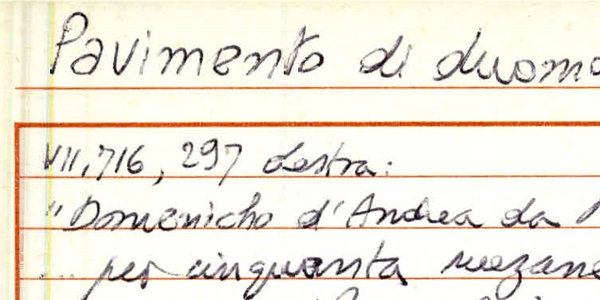 Pavimento di duomo
VII, 716, 297 destra:
"Domenicho d'Andrea da
... per cinquanta mezane